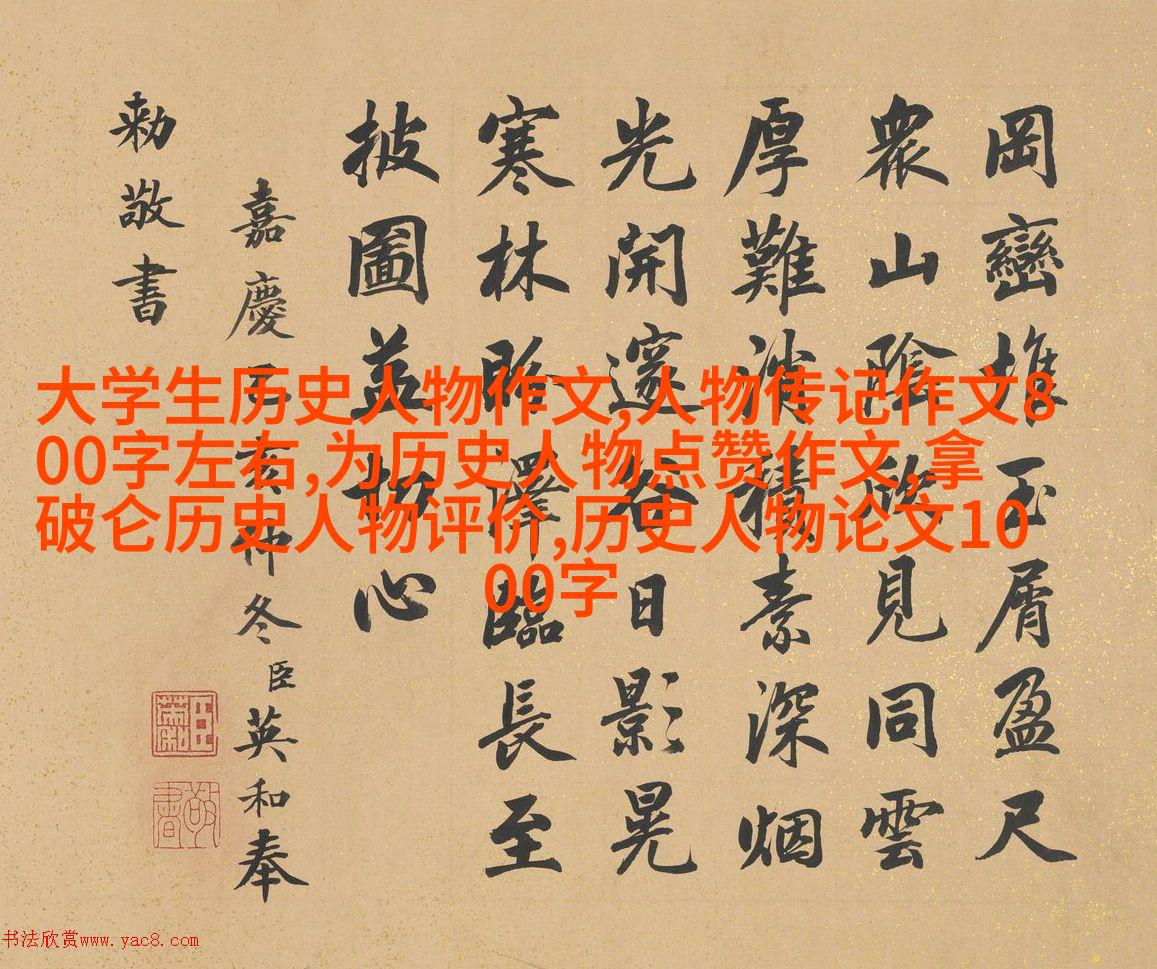 岡巒堆玉屑盈尺
衆山陰欲見同雲
厚難消積素深烟
光開邃谷日影晃
寒林澤臨長至
披圖益心
嘉慶乙亥仲冬臣英和奉
勅敬書
敬書
大学生历史人物作文,人物传记作文8
00字左右,为历史人物点赞作文,拿
破仑历史人物评价,历史人物论文10
00字
书法欣赏www.yac8.com